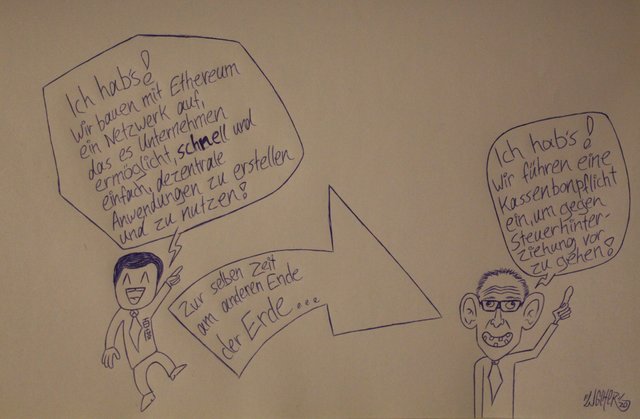 Ich hab's!
Wir bauen mit Ethereum
ein Netzwerk auf,
das es Unternehmen
ermöglicht, schnell und
einfach, dezentrale
Anwendungen zu erstellen
und zu nutzen!
Zur selben Zeit
am anderen Ende
der Erde...
Ich hab's!
Wir führen eine
Kassenbonpflicht
ein, um gegen
Steuerhinter-
ziehung vor
zu gehen!